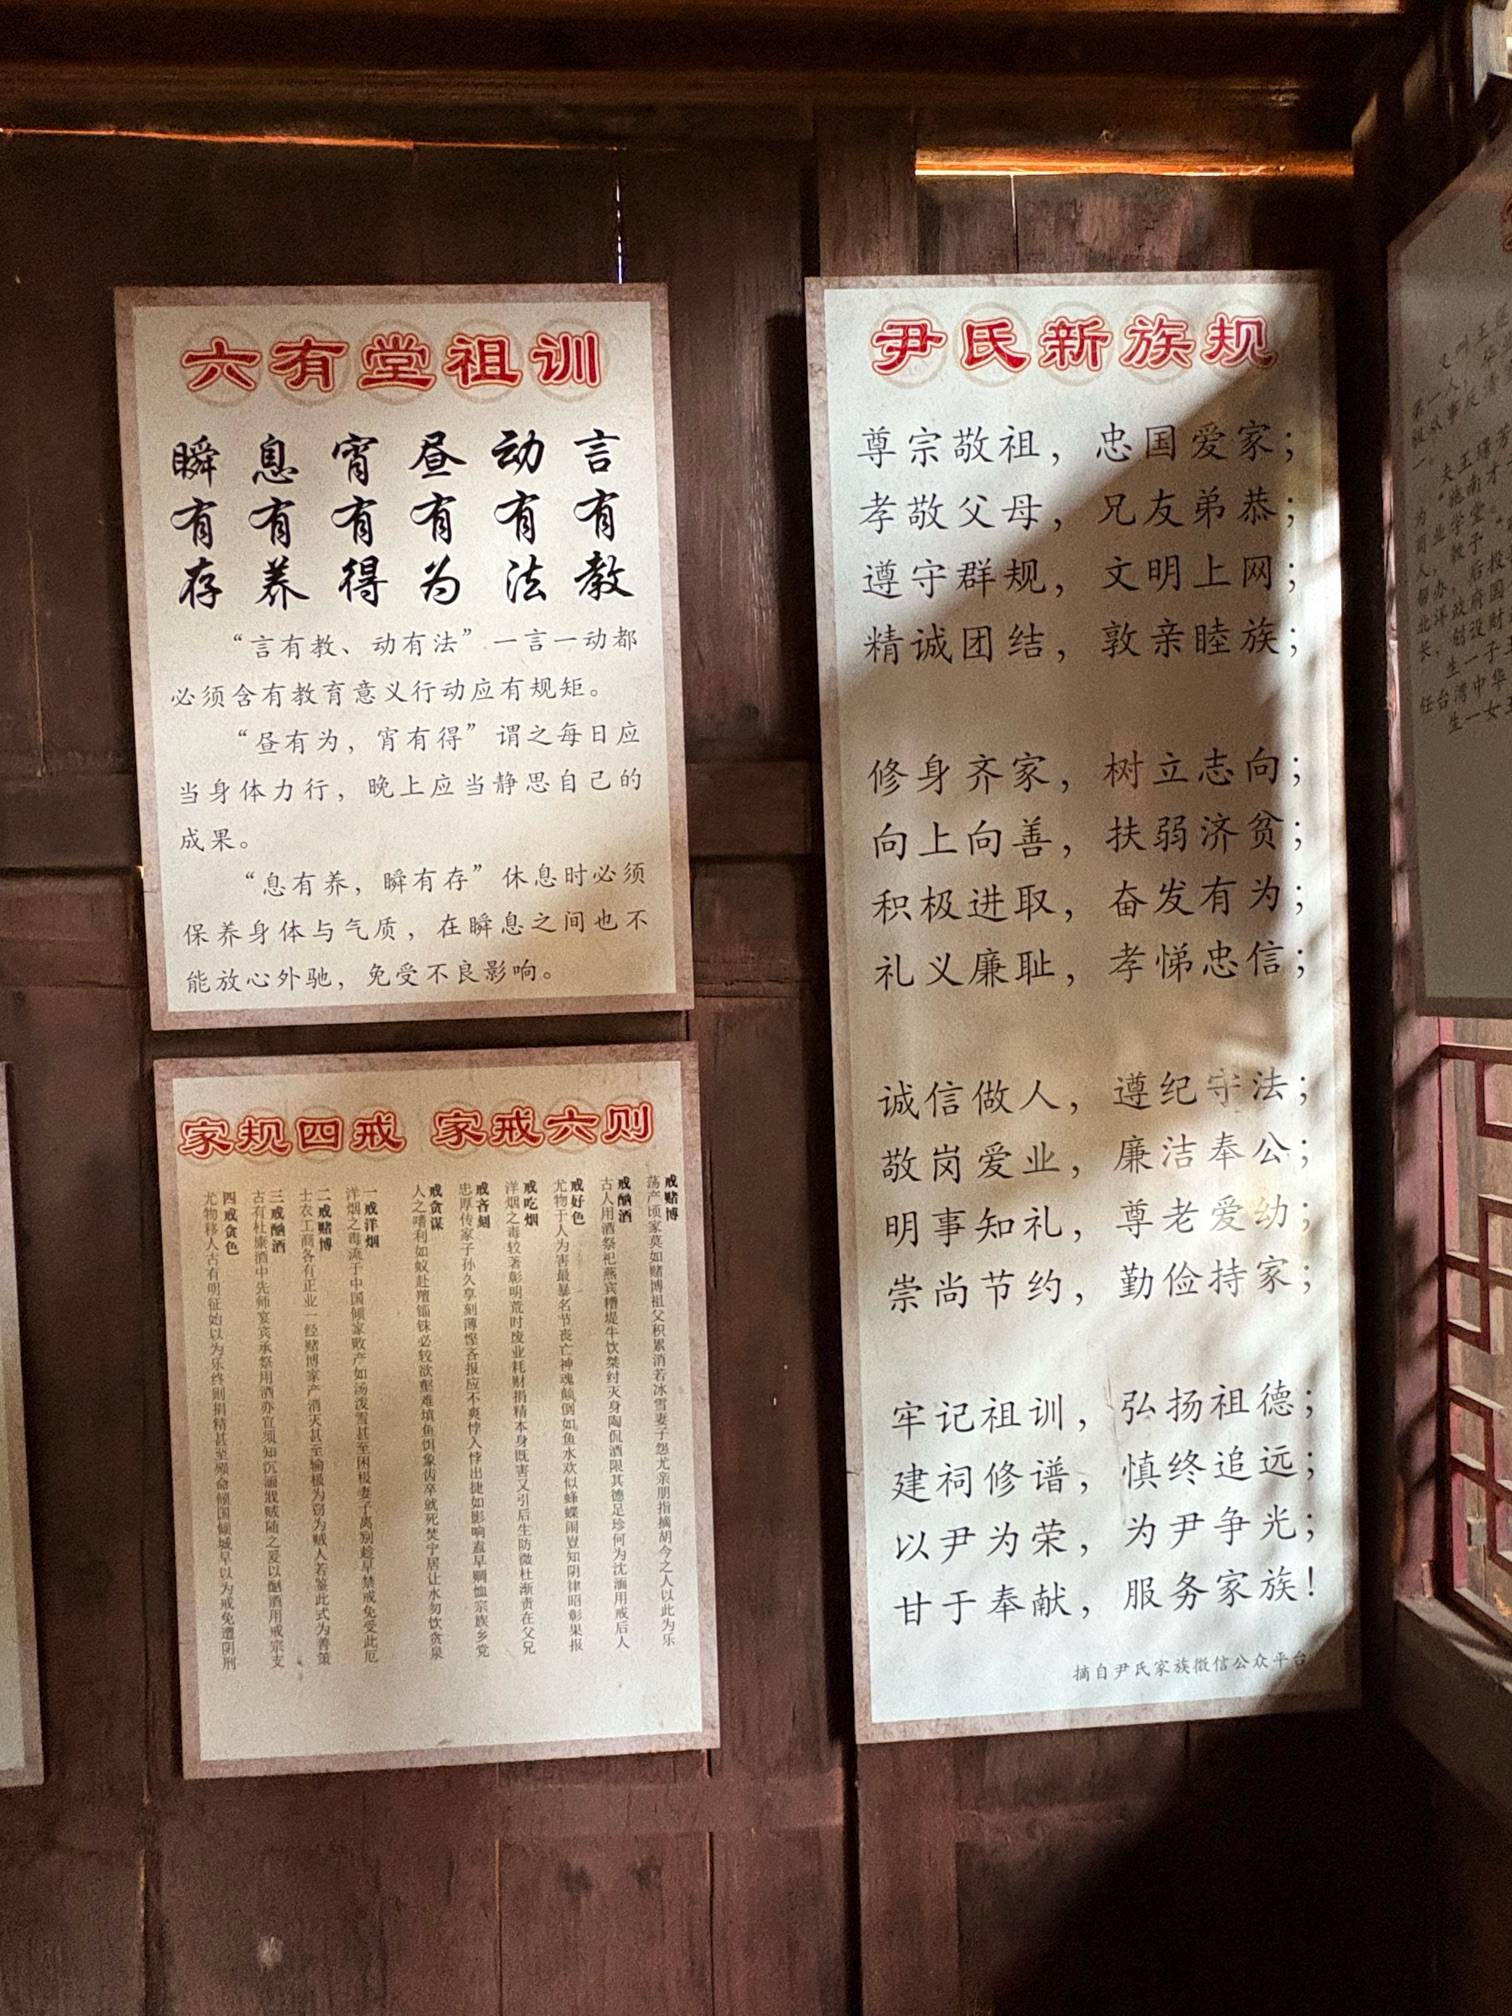 六有堂祖训
言有教
动有法
昼有为
宵有得
息有养
瞬有存
“言有教、动有法”一言一动都
必须含有教育意义行动应有规矩。
“昼有为，宵有得”谓之每日应
当身体力行，晚上应当静思自己的
成果。
“息有养，瞬有存”休息时必须
保养身体与气质，在瞬息之间也不
能放心外驰，免受不良影响。
家规四戒 家戒六则
戒赌博
荡产顷家莫如赌博祖父积累消若冰雪妻子怨尤亲朋指摘胡今之人以此为乐
戒酗酒
古人用酒祭祀燕宾糟堤牛饮桀纣灭身陶侃酒限其德足珍何为沈湎用戒后人
戒好色
尤物于人为害最暴名节丧亡神魂颠倒如鱼水欢似蜂蝶闹岂知阴律昭彰果报
戒吃烟
洋烟之毒较著彰明荒时废业耗财捐精本身既害又引后生防微杜渐责在父兄
戒吝刻
忠厚传家子孙久享刻薄悭吝报应不爽悖入悖出捷如影响盍早赒恤宗族乡党
戒贪谋
人之嗜利如蚁赴膻锱铢必较欲壑难填鱼饵象齿卒就死焚宁居让水勿饮贪泉
一戒洋烟
洋烟之毒流于中国倾家败产如汤泼雪甚至困极妻子离别趁早禁戒免受此厄
二戒赌博
士农工商各有正业一经赌博家产消灭甚至输极为窃为贼人若鉴此式为善策
三戒酗酒
古有杜康酒中先师宴宾承祭用酒亦宜须知沉湎戕贼随之爰以酗酒用戒宗支
四戒贪色
尤物移人古有明征始以为乐终则捐精甚至殒命倾国倾城早以为戒免遭阴刑
尹氏新族规
尊宗敬祖，忠国爱家；
孝敬父母，兄友弟恭；
遵守群规，文明上网；
精诚团结，敦亲睦族；
修身齐家，树立志向；
向上向善，扶弱济贫；
积极进取，奋发有为；
礼义廉耻，孝悌忠信；
诚信做人，遵纪守法；
敬岗爱业，廉洁奉公；
明事知礼，尊老爱幼；
崇尚节约，勤俭持家；
牢记祖训，弘扬祖德；
建祠修谱，慎终追远；
以尹为荣，为尹争光；
甘于奉献，服务家族！
摘自尹氏家族微信公众平台